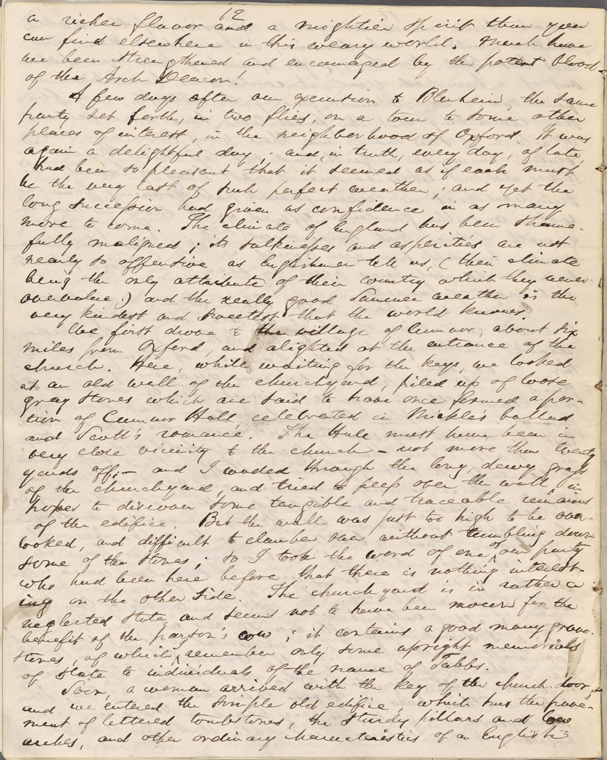 12
a richer flavor and a mightier spirit than you
can find elsewhere in this weary world. Much have
we been strengthened and encouraged by the potent blood
of the Arch Deacon!
A few days after our excursion to Blenheim, the same
party set forth, in two flies, on a tour to some other
places of interest, in the neighborhood of Oxford. It was
again a delightful day; and, in truth, every day, of late,
had been so pleasant that it seemed as if each must
be the very last of such perfect weather; and yet the
long succession had given us confidence in as many
more to come. The climate of England has been shame-
fully maligned; its sulkinesses and asperities are not
nearly so offensive as Englishmen tell us, (their climate
being the only attribute of their country which they never
overvalue;) and the really good summer weather is the
very kindest and sweetest that the world knows.
We first drove to the village of Cumnor, about six
miles from Oxford, and alighted at the entrance of the
church. Here, while waiting for the keys, we looked
at an old wall of the churchyard, piled up of loose
gray stones which are said to have once formed a por-
tion of Cumnor Hall, celebrated in Mickle's ballad
and Scott's romance. The Hall must have been in
very close vicinity to the church - not more than twenty
yards off, - and I waded through the long, dewy grass
of the churchyard, and tried to peep over the wall, in
hopes to discover some tangible and traceable remains
of the edifice. But the wall was just too high to be over-
looked, and difficult to clamber over without tumbling down
some of the stones; so I took the word of one of our party
who had been here before, that there is nothing interest-
ing on the other side. The churchyard is in rather a
neglected state, and seems not to have been mown for the
benefit of the parson's cow; it contains a good many grave-
stones, of which I remember only some upright memorials
of slate to individuals of the name of Tabbs.
Soon, a woman arrived with the key of the church-door,
and we entered the simple old edifice, which has the pave-
ment of lettered tombstones, the sturdy pillars and low
arches, and other ordinary characteristics of an English